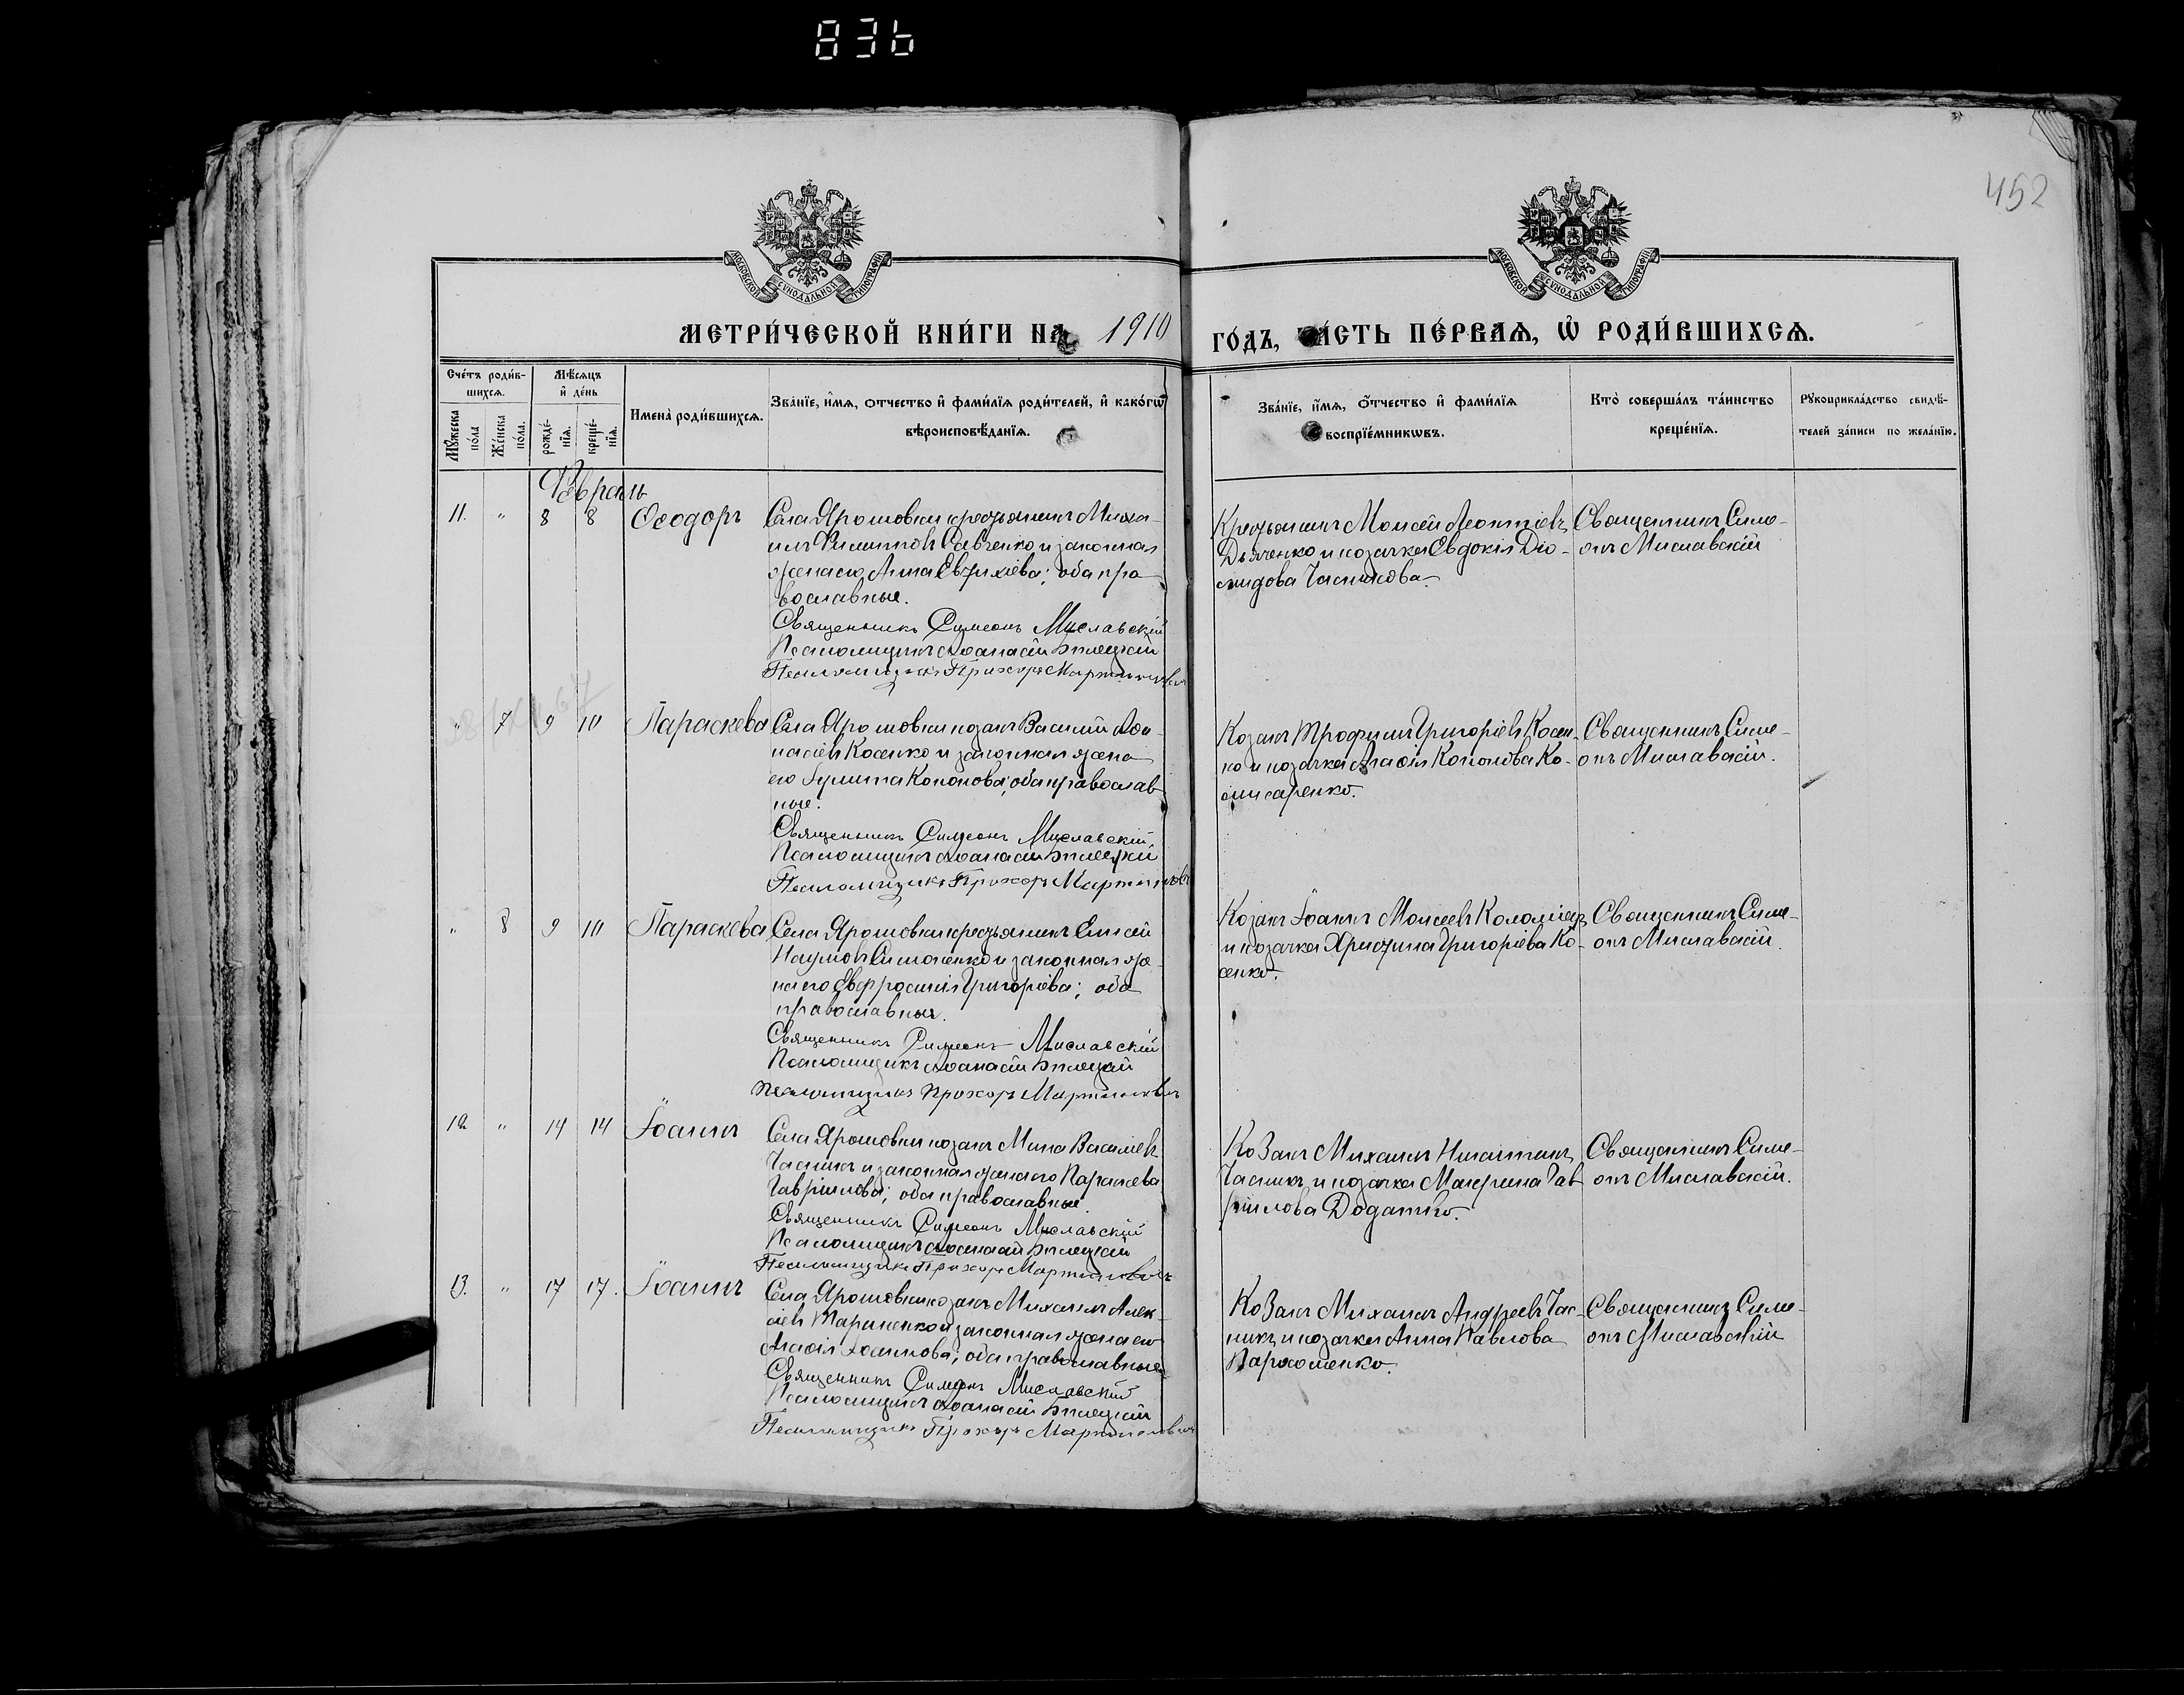 836
452
МОСКОВСКОЙ СѴНОДАЛЬНОЙ ТИПОГРАФІИ
МОСКОВСКОЙ СѴНОДАЛЬНОЙ ТИПОГРАФІИ
МЕТРИ́ЧЕСКОЙ КНИ́ГИ НА 1910 ГО́ДЪ, ЧА́СТЬ ПЕ́РВАѦ, Ѡ҆ РОДИ́ВШИХСѦ.
Сче́тъ роди́в-
шихсѧ.
Мꙋ́жеска
по́ла
Же́нска
по́ла.
Мѣ́сѧцъ
и҆ де́нь
рожде́-
нїѧ.
креще́-
нїѧ.
И҆мена̀ роди́вшихсѧ.
Зва́нїе, и҆́мѧ, ѻ҆́тчество и҆ фами́лїѧ роди́телей, и҆ како́гѡ
вѣроисповѣ́данїѧ.
Зва́нїе, и҆́мѧ, ѻ҆́тчество и҆ фами́лїѧ
воспрїе́мникѡвъ.
Кто̀ соверша́лъ та́инство
креще́нїѧ.
Рꙋкоприкла́дство свидѣ́-
телей за́писи по жела́нїю.
Февраль
11. " 8 8 Ѳеодоръ
Села Ярошовки крестьянинъ Миха-
илъ Филипповъ Савченко и законная
жена его Анна Евтихіева; оба пра-
вославные.
Священникъ Симеонъ Миславскій
Псаломщикъ Аѳанасій Билецкій
Псаломщикъ Прохоръ Мартиновичъ
Крестьянинъ Моисей Леонтіевъ
Дьяченко и козачка Евдокія Діо-
мидова Часникова.
Священникъ Симе-
онъ Миславскій
" 7 9 10 Параскева
Села Ярошовки козакъ Василій Аѳа-
насіевъ Косенко и законная жена
его Гулита Кононова; оба православ-
ные.
Священникъ Симеонъ Миславскій
Псаломщикъ Аѳанасій Билецкій
Псаломщикъ Прохоръ Мартиновичъ
Козакъ Трофимъ Григоріевъ Косен-
ко и козачка Агаѳія Кононова Ко-
Священникъ Симе-
онъ Миславскій.
" 8 9 10 Параскева
Села Ярошовки крестьянинъ Елисей
Наумовъ Симоненко и законная же-
на его Евфросинія Григоріева; оба
православные.
Священникъ Симеонъ Миславскій
Псаломщикъ Аѳанасій Билецкій
Псаломщикъ Прохоръ Мартиновичъ
Козакъ Іоаннъ Моисеевъ Коломіецъ
и козачка Христина Григоріева Ко-
сенко.
Священникъ Симе-
онъ Миславскій.
12 " 14 14 Іоаннъ
Села Ярошовки козакъ Мина Васильевъ
Часникъ и законная жена его Параскева
Гавріилова; оба православные.
Священникъ Симеонъ Миславскій
Псаломщикъ Аѳанасій Билецкій
Псаломщикъ Прохоръ Мартиновичъ
Козакъ Михаилъ Игнатіевъ
Часникъ и козачка Макрина Гав-
ріилова Додатко.
Священникъ Симе-
онъ Миславскій.
13. " 17 17. Іоаннъ
Села Ярошовки козакъ Михаилъ Алек-
сіевъ Тараненко и законная жена его
Агаѳія Іоакимова; оба православные.
Священникъ Симеонъ Миславскій
Псаломщикъ Аѳанасій Билецкій
Псаломщикъ Прохоръ Мартиновичъ
Козакъ Михаилъ Андреевъ Час-
никъ и козачка Анна Павлова
Пархоменко.
Священникъ Симе-
онъ Миславскій